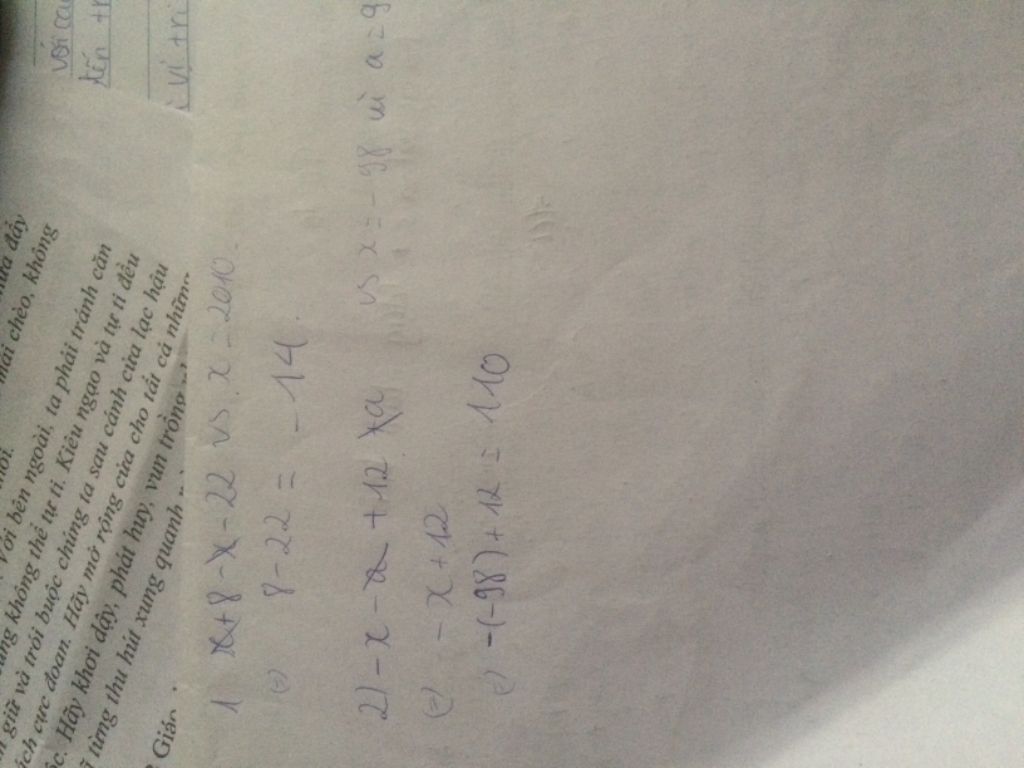 với
tến
vị trí
đẩy
mái chèo, không
Với bên ngoài, ta phải tránh căn
không thể tự ti. Kiêu ngạo và tự ti đều
giữ và trói buộc chúng ta sau cánh cửa lạc hậu
ích cực đoan. Hãy mở rộng cửa cho tất cả những
Hãy khơi dậy, phát huy, vun trồng
từng thu hút xung quanh
1 x+8-x-22 vs x=2010.
(=) 8-22 = -14.
2) -x-a+12+a vs x=-98 vì a=9
(=) -x+12
(=) -(-98)+12=110